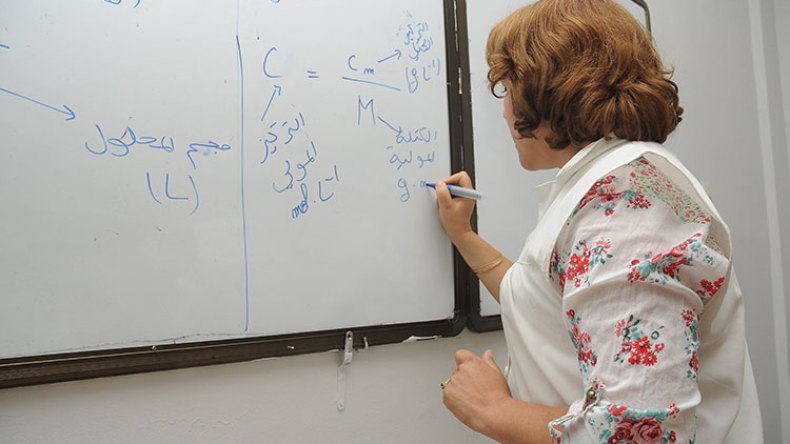 حجم المحلول
(L)
C = Cm / M
التركيز
الكتلي
(g.L⁻¹)
التركيز
المولي
mol.L⁻¹
الكتلة
المولية
g.m